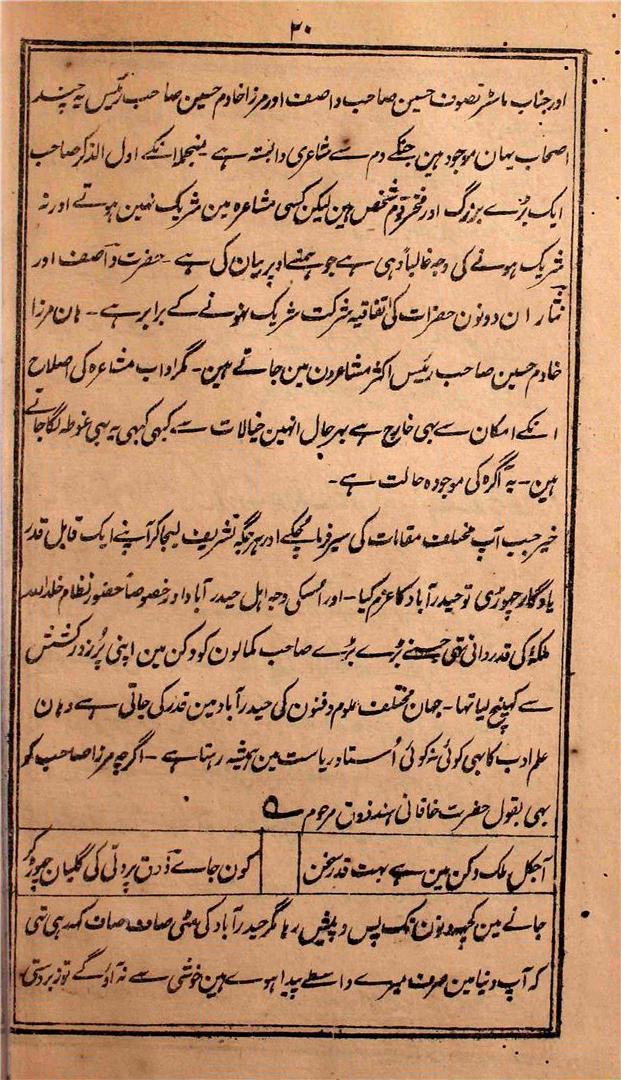 ۲۰
اور جناب ماسٹر تصوف حسین صاحب واصف اور مرزا خادم حسین صاحب رئیس یہ چند
اصحاب یہان موجود ہین جنکے دم سے شاعری وابستہ ہے۔ منجملہ انکے اول الذکر صاحب
ایک بڑے بزرگ اور مفخر قوم شخص ہین لیکن کسی مشاعرہ مین شریک نہین ہوتے اور نہ
شریک ہونے کی وجہ غالباً وہی ہے جو ہمنے اوپر بیان کی ہے۔ حضرت واصف اور
نثار ان دونون حضرات کی اتفاقیہ شرکت شریک نہونے کے برابر ہے۔ ہان مرزا
خادم حسین صاحب رئیس اکثر مشاعرون مین جاتے ہین۔ مگر اداب مشاعرہ کی اصلاح
انکے امکان سے بہی خارج ہے بہر حال انہین خیالات سے کبہی کبہی یہ بہی غوطہ لگا جاتے
ہین۔ یہ آگرہ کی موجودہ حالت ہے۔
خیر جب آپ مختلف مقامات کی سیر فرما چکے اور ہر جگہ تشریف لیجا کر آپنے ایک قابل قدر
یادگار چہوڑی تو حیدرآباد کا عزم کیا۔ اور اسکی وجہ اہل حیدرآباد اور خصوصاً حضور نظام خلد اللہ
ملکہٗ کی قدردانی تہی جسنے بڑے بڑے صاحب کمالون کو دکن مین اپنی پُرزور کشش
سے کہینچ لیا تہا۔ جہان مختلف علوم و فنون کی حیدرآباد مین قدر کی جاتی ہے وہان
علم ادب کا بہی کوئی نہ کوئی اُستاد ریاست مین ہمیشہ رہتا ہے۔ اگرچہ مرزا صاحب کو
بہی بقول حضرت خاقانی ہند ذوق مرحوم ؎
آجکل ملک دکن مین ہے بہت قدر سخن کون جاے ذوق پر دلّی کی گلیان چہوڑ کر
جانے مین کچہہ دنون تک پس و پیش رہا مگر حیدرآباد کی مٹی صاف صاف کہہ رہی تہی
کہ آپ دنیا مین صرف میرے واسطے پیدا ہوے ہین خوشی سے نہ آؤگے تو زبردستی